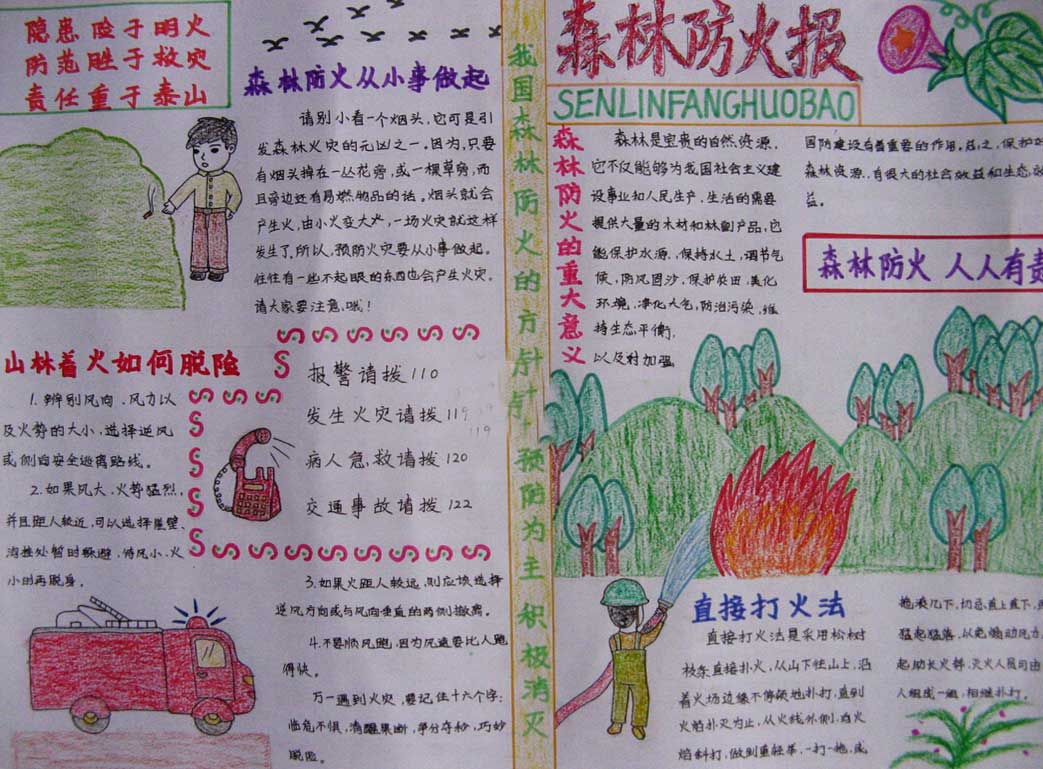 隐患险于明火
防范胜于救灾
责任重于泰山
森林防火从小事做起
请别小看一个烟头,它可是引
发森林火灾的元凶之一。因为,只要
有烟头掉在一丛花旁,或一棵草旁,而
且旁边还有易燃物品的话。烟头就会
产生火,由小火变大火,一场火灾就这样
发生了。所以,预防火灾要从小事做起。
往往有一些不起眼的东西也会产生火灾。
请大家要注意,哦!
山林着火如何脱险
1.辨别风向、风力以
及火势的大小,选择逆风
或侧向安全逃离路线。
2.如果风大,火势猛烈,
并且距人较近,可以选择崖壁、
沟洼处暂时躲避,待风小、火
小时再脱身。
报警请拨110
发生火灾请拨119
119
病人急救请拨120
交通事故请拨122
3.如果火距人较远,则应该选择
逆风方向或与风向垂直的两侧撤离。
4.不要顺风跑,因为风速要比人跑
得快。
万一遇到火灾,要记住十六个字:
临危不惧,清醒果断,争分夺秒,巧妙
脱险。
我国森林防火的方针是:预防为主 积极消灭
森林防火报
SENLINFANGHUOBAO
森林防火的重大意义
森林是宝贵的自然资源,
它不仅能够为我国社会主义建
设事业和人民生产、生活的需要
提供大量的木材和林副产品,它
能保护水源、保持水土,调节气
候,防风固沙,保护农田,美化
环境,净化大气,防治污染,维
持生态平衡,
以及对加强
国防建设有着重要的作用。总之,保护好
森林资源,有很大的社会效益和生态效
益。
森林防火 人人有责
直接打火法
直接打火法是采用松树
枝条直接扑火,从山下往山上,沿
着火场边缘不停顿地扑打,直到
火焰扑灭为止,从火线外侧,向火
焰斜打,做到重轻举,一打一拖,或
拖滚几下,切忌直上直下,
猛起猛落,以免煽动风力,
起助长火势,灭火人员可由
人组成一组,相继扑打。